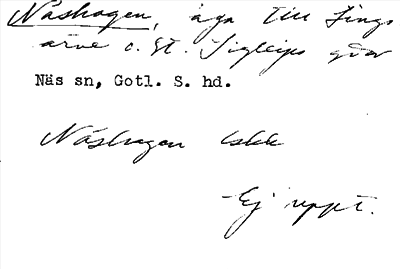 Näshagen, äga till Fings
arve o. St. Sigleifs gdar
Näs sn, Gotl. S. hd.
Näshagen Iskk
Ej uppt.